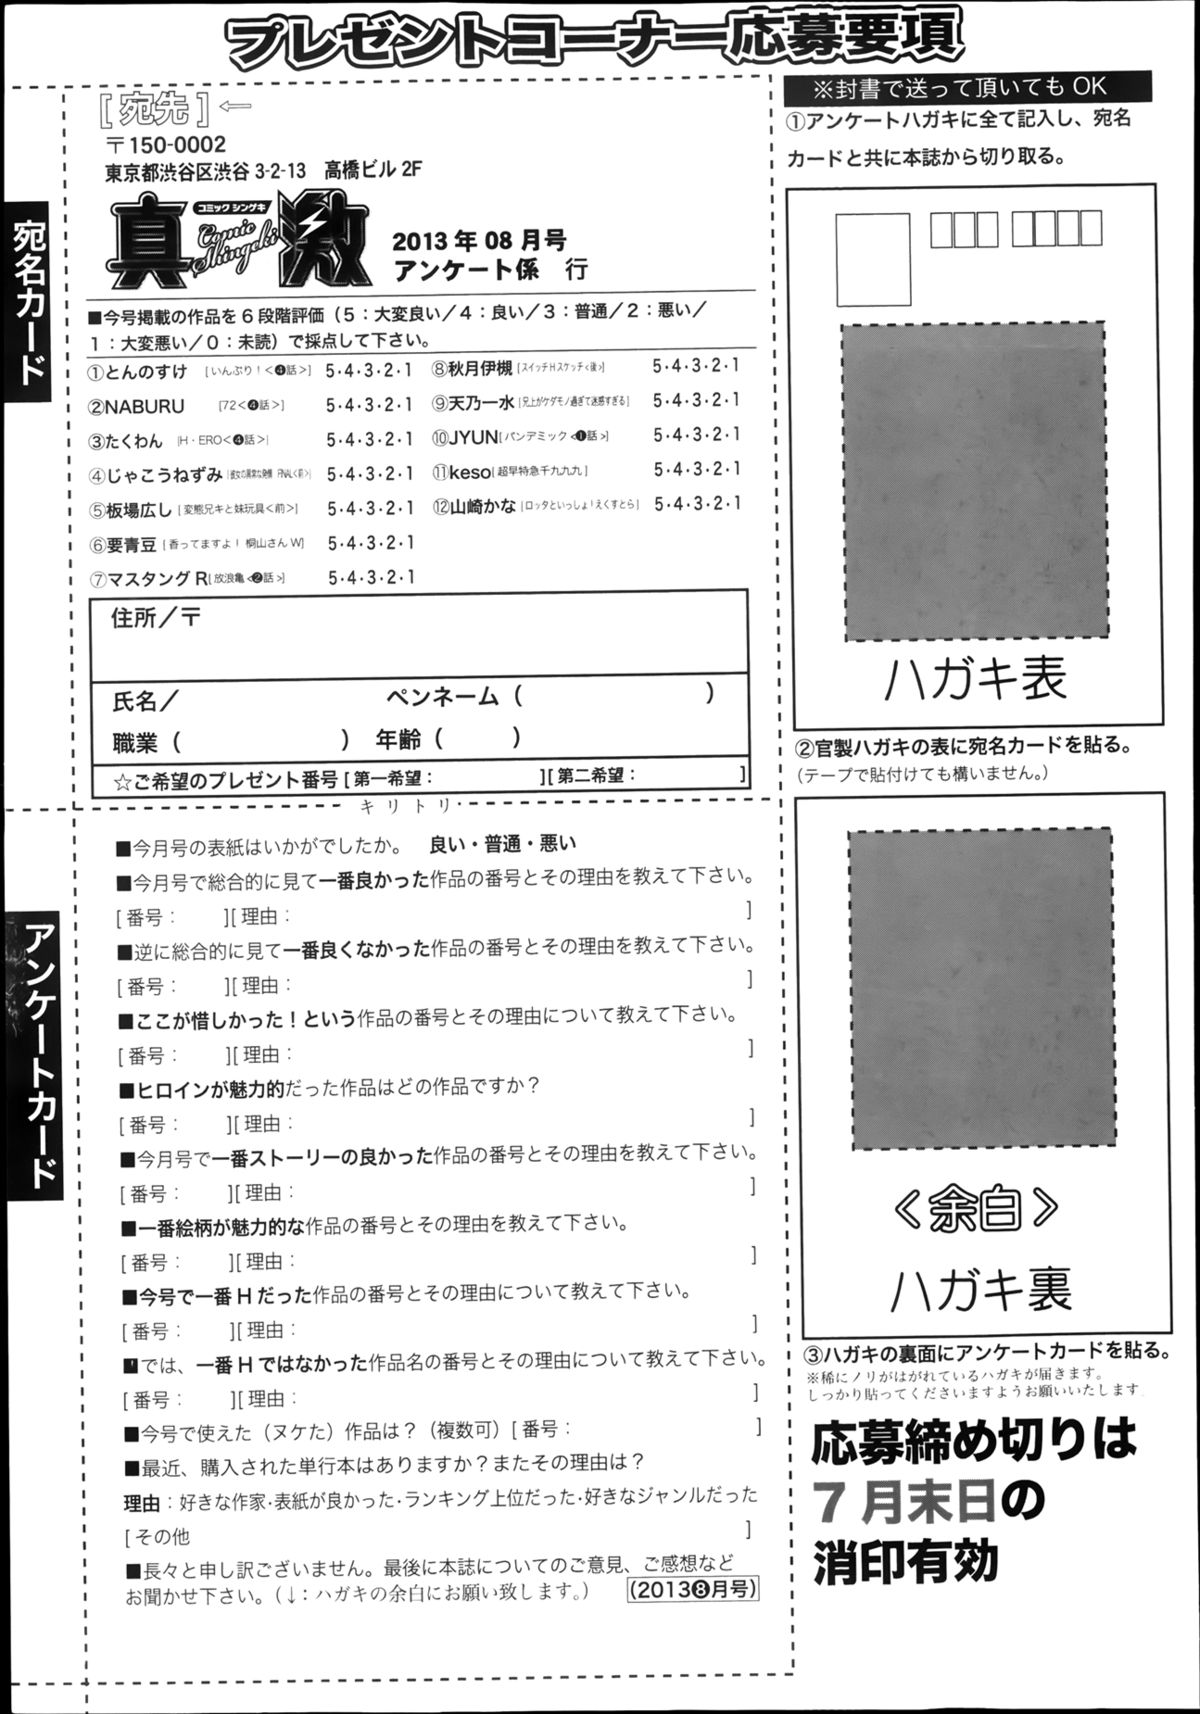 プレゼントコーナー応募要項
宛名カード
[ 宛先 ] ←
〒150-0002
東京都渋谷区渋谷 3-2-13　高橋ビル 2F
真激
コミック シンゲキ
Comic Shingeki
2013 年 08 月号
アンケート係　行
■今号掲載の作品を 6 段階評価（5：大変良い／4：良い／3：普通／2：悪い／
1：大変悪い／0：未読）で採点して下さい。
①とんのすけ [いんぶり！<❹話>] 5・4・3・2・1
②NABURU [72<❹話>] 5・4・3・2・1
③たくわん [H・ERO<❹話>] 5・4・3・2・1
④じゃこうねずみ 5・4・3・2・1
⑤板場広し [変態兄キと妹玩具<前>] 5・4・3・2・1
⑥要青豆 [香ってますよ！桐山さん W] 5・4・3・2・1
⑦マスタング R [放浪亀<❷話>] 5・4・3・2・1
⑧秋月伊槻 [スイッチHスケッチ<後>] 5・4・3・2・1
⑨天乃一水 [兄上がケダモノ過ぎて迷惑すぎる] 5・4・3・2・1
⑩JYUN [パンデミック<❶話>] 5・4・3・2・1
⑪keso [超早特急千九九九] 5・4・3・2・1
⑫山崎かな [ロッタといっしょ！えくすとら] 5・4・3・2・1
住所／〒
氏名／　ペンネーム（　）
職業（　）年齢（　）
☆ご希望のプレゼント番号 [ 第一希望：　][ 第二希望：　]
キリトリ
アンケートカード
■今月号の表紙はいかがでしたか。　良い・普通・悪い
■今月号で総合的に見て一番良かった作品の番号とその理由を教えて下さい。
[ 番号：　][ 理由：　]
■逆に総合的に見て一番良くなかった作品の番号とその理由を教えて下さい。
[ 番号：　][ 理由：　]
■ここが惜しかった！という作品の番号とその理由について教えて下さい。
[ 番号：　][ 理由：　]
■ヒロインが魅力的だった作品はどの作品ですか？
[ 番号：　][ 理由：　]
■今月号で一番ストーリーの良かった作品の番号とその理由を教えて下さい。
[ 番号：　][ 理由：　]
■一番絵柄が魅力的な作品の番号とその理由を教えて下さい。
[ 番号：　][ 理由：　]
■今号で一番 H だった作品の番号とその理由について教えて下さい。
[ 番号：　][ 理由：　]
■では、一番 H ではなかった作品名の番号とその理由について教えて下さい。
[ 番号：　][ 理由：　]
■今号で使えた（ヌケた）作品は？（複数可）[ 番号：　]
■最近、購入された単行本はありますか？またその理由は？
理由：好きな作家・表紙が良かった・ランキング上位だった・好きなジャンルだった
[ その他　]
■長々と申し訳ございません。最後に本誌についてのご意見、ご感想など
お聞かせ下さい。（↓：ハガキの余白にお願い致します。）
(2013❽月号)
※封書で送って頂いても OK
①アンケートハガキに全て記入し、宛名
カードと共に本誌から切り取る。
ハガキ表
②官製ハガキの表に宛名カードを貼る。
（テープで貼付けても構いません。）
＜余白＞
ハガキ裏
③ハガキの裏面にアンケートカードを貼る。
※稀にノリがはがれているハガキが届きます。
しっかり貼ってくださいますようお願いいたします
応募締め切りは
7 月末日の
消印有効